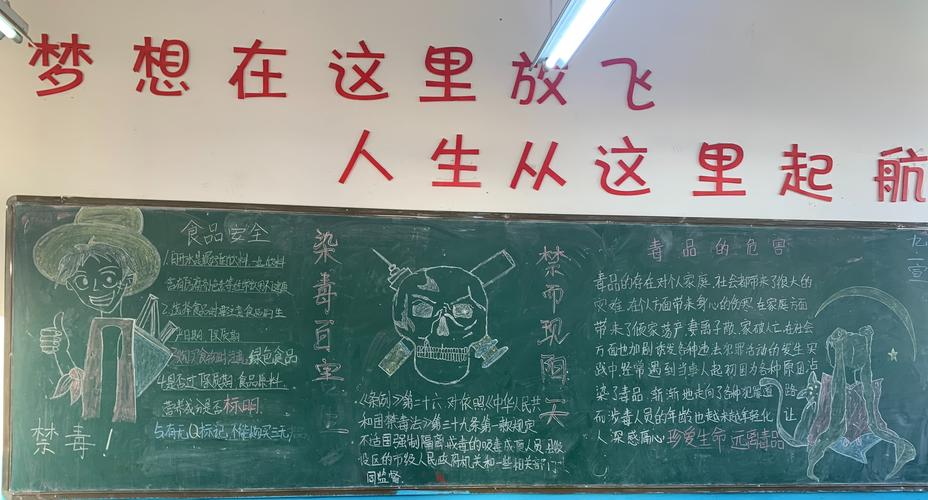 梦想在这里放飞
人生从这里起航
食品安全
1.白开水是最好的饮料,一些饮料
2.选择食品时要注意食品的生
产日期、保质期
绿色食品
4.是否过保质期 食品原料
营养成分是否标明
与有无QS标记,不能购买三无
禁毒!
染毒百害
禁而现雨天
《条例》第二十六对依照《中华人民共
和国禁毒法》第三十八条第一款规定
不适国强制隔离戒毒的吸毒成瘾人员县级
设区的市级人民政府机关和一些相关部门
同监督
毒品的危害
毒品的存在对个人家庭、社会都带来了很大的
灾难,在个人方面带来身心的伤害在家庭方面
带来了倾家荡产妻离子散、家破人亡在社会
方面也加剧诱发各种违法犯罪活动的发生实
践中经常遇到当事人起初因为各种原因点
染了毒品,渐渐地走向了各种犯罪道路
而涉毒人员的年龄也越来越年轻化,让
人深感痛心珍爱生命 远离毒品